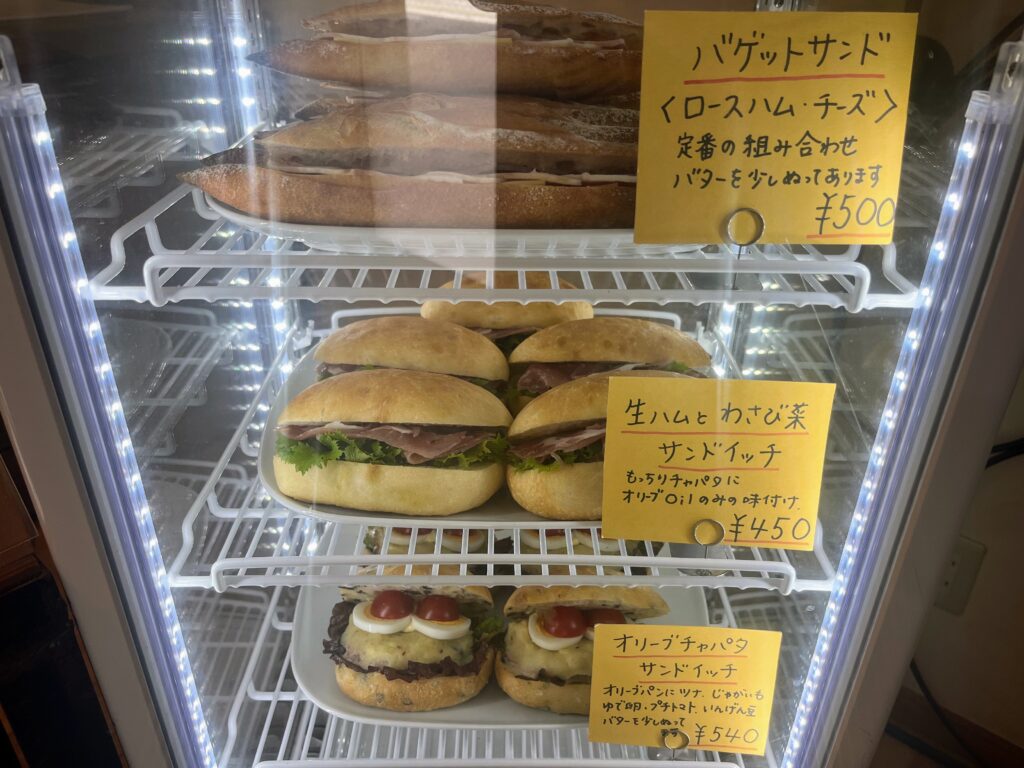 バゲットサンド
〈ロースハム・チーズ〉
定番の組み合わせ
バターを少しぬってあります
¥500
生ハムとわさび菜
サンドイッチ
もっちりチャパタに
オリーブOilのみの味付け.
¥450
オリーブチャパタ
サンドイッチ
オリーブパンにツナ.じゃがいも
ゆで卵.プチトマト.いんげん豆
バターを少しぬって
ます
¥540